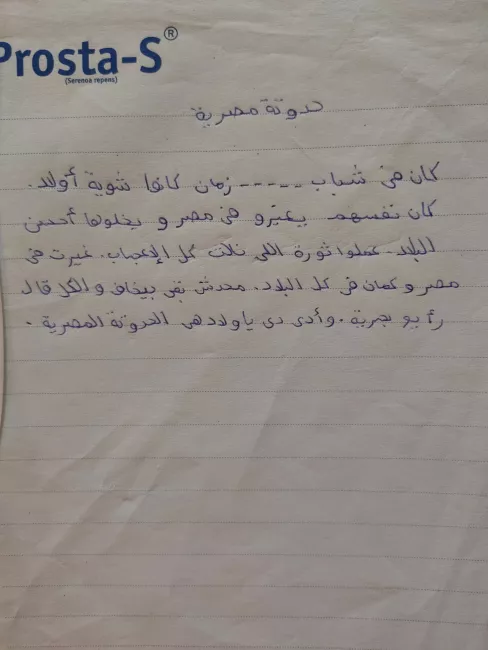 Prosta-S®
(Serenoa repens)
حدوتة مصرية
كان فى شباب ----- زمان كانوا شوية أولاد.
كان نفسهم يغيرو فى مصر و يخلوها أحسن
البلاد. عملوا ثورة اللى نالت كل الإعجاب. غيرت فى
مصر و كمان فى كل البلاد. محدش بقى بيخاف والكل قال
رأيو بحرية. وأدى دى ياولاد هى الحدوتة المصرية.